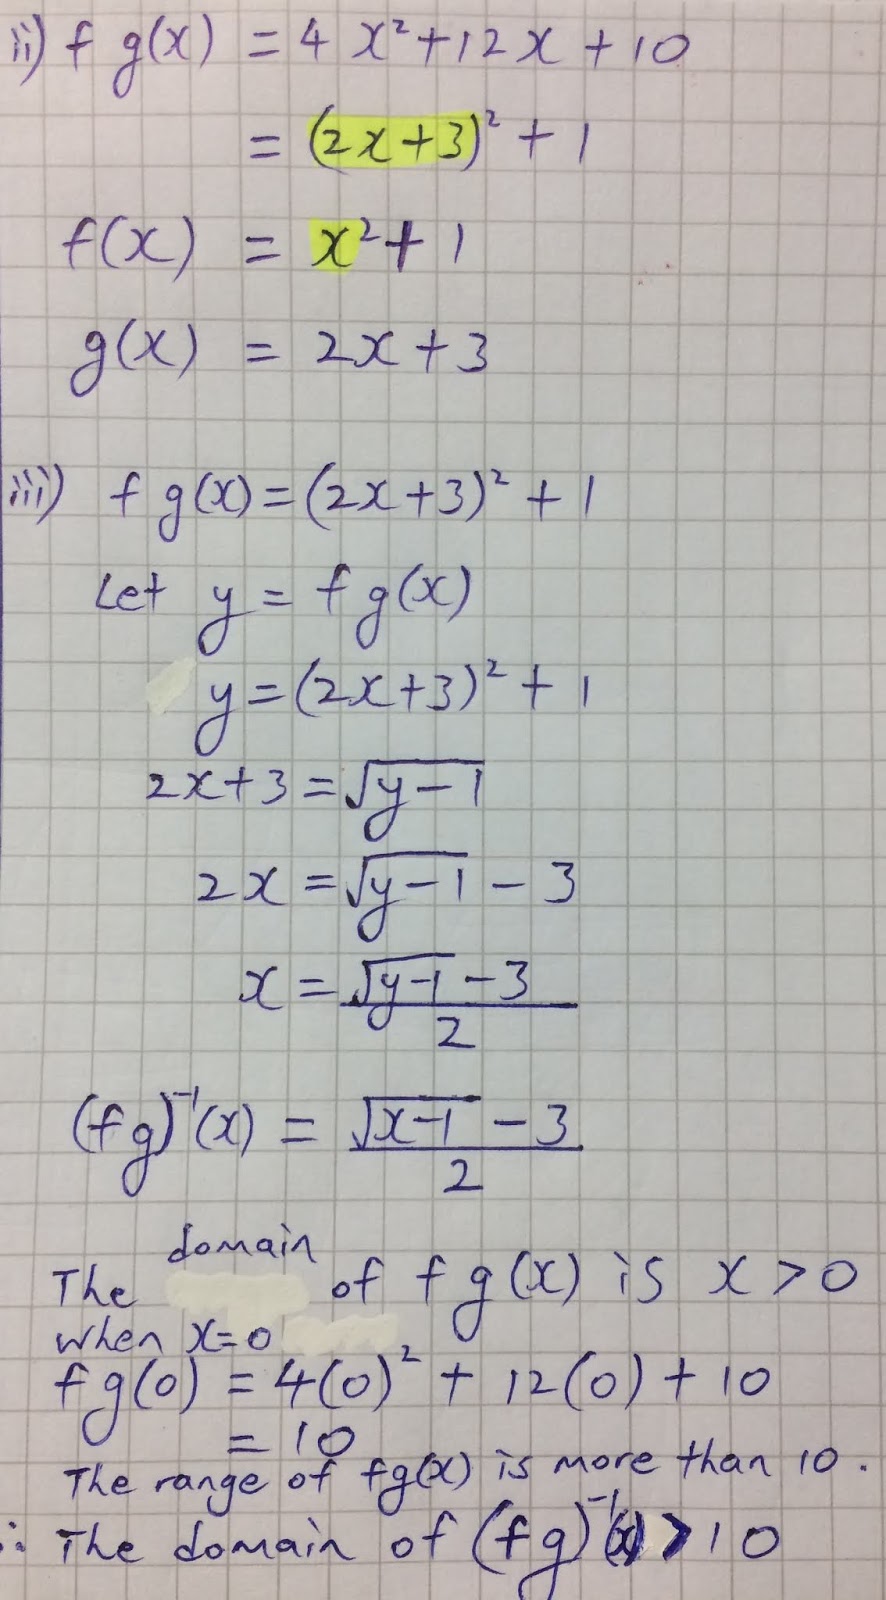 ii) f g(x) = 4 x² + 12x + 10
= (2x+3)² + 1
f(x) = x² + 1
g(x) = 2x + 3
iii) f g(x) = (2x+3)² + 1
Let y = f g(x)
y = (2x+3)² + 1
2x+3 = √(y-1)
2x = √(y-1) - 3
x = (√(y-1) - 3)/2
(fg)⁻¹(x) = (√(x-1) - 3)/2
The domain of f g(x) is x > 0
when x=0
f g(0) = 4(0)² + 12(0) + 10
= 10
The range of fg(x) is more than 10.
∴ The domain of (fg)⁻¹(x) > 10